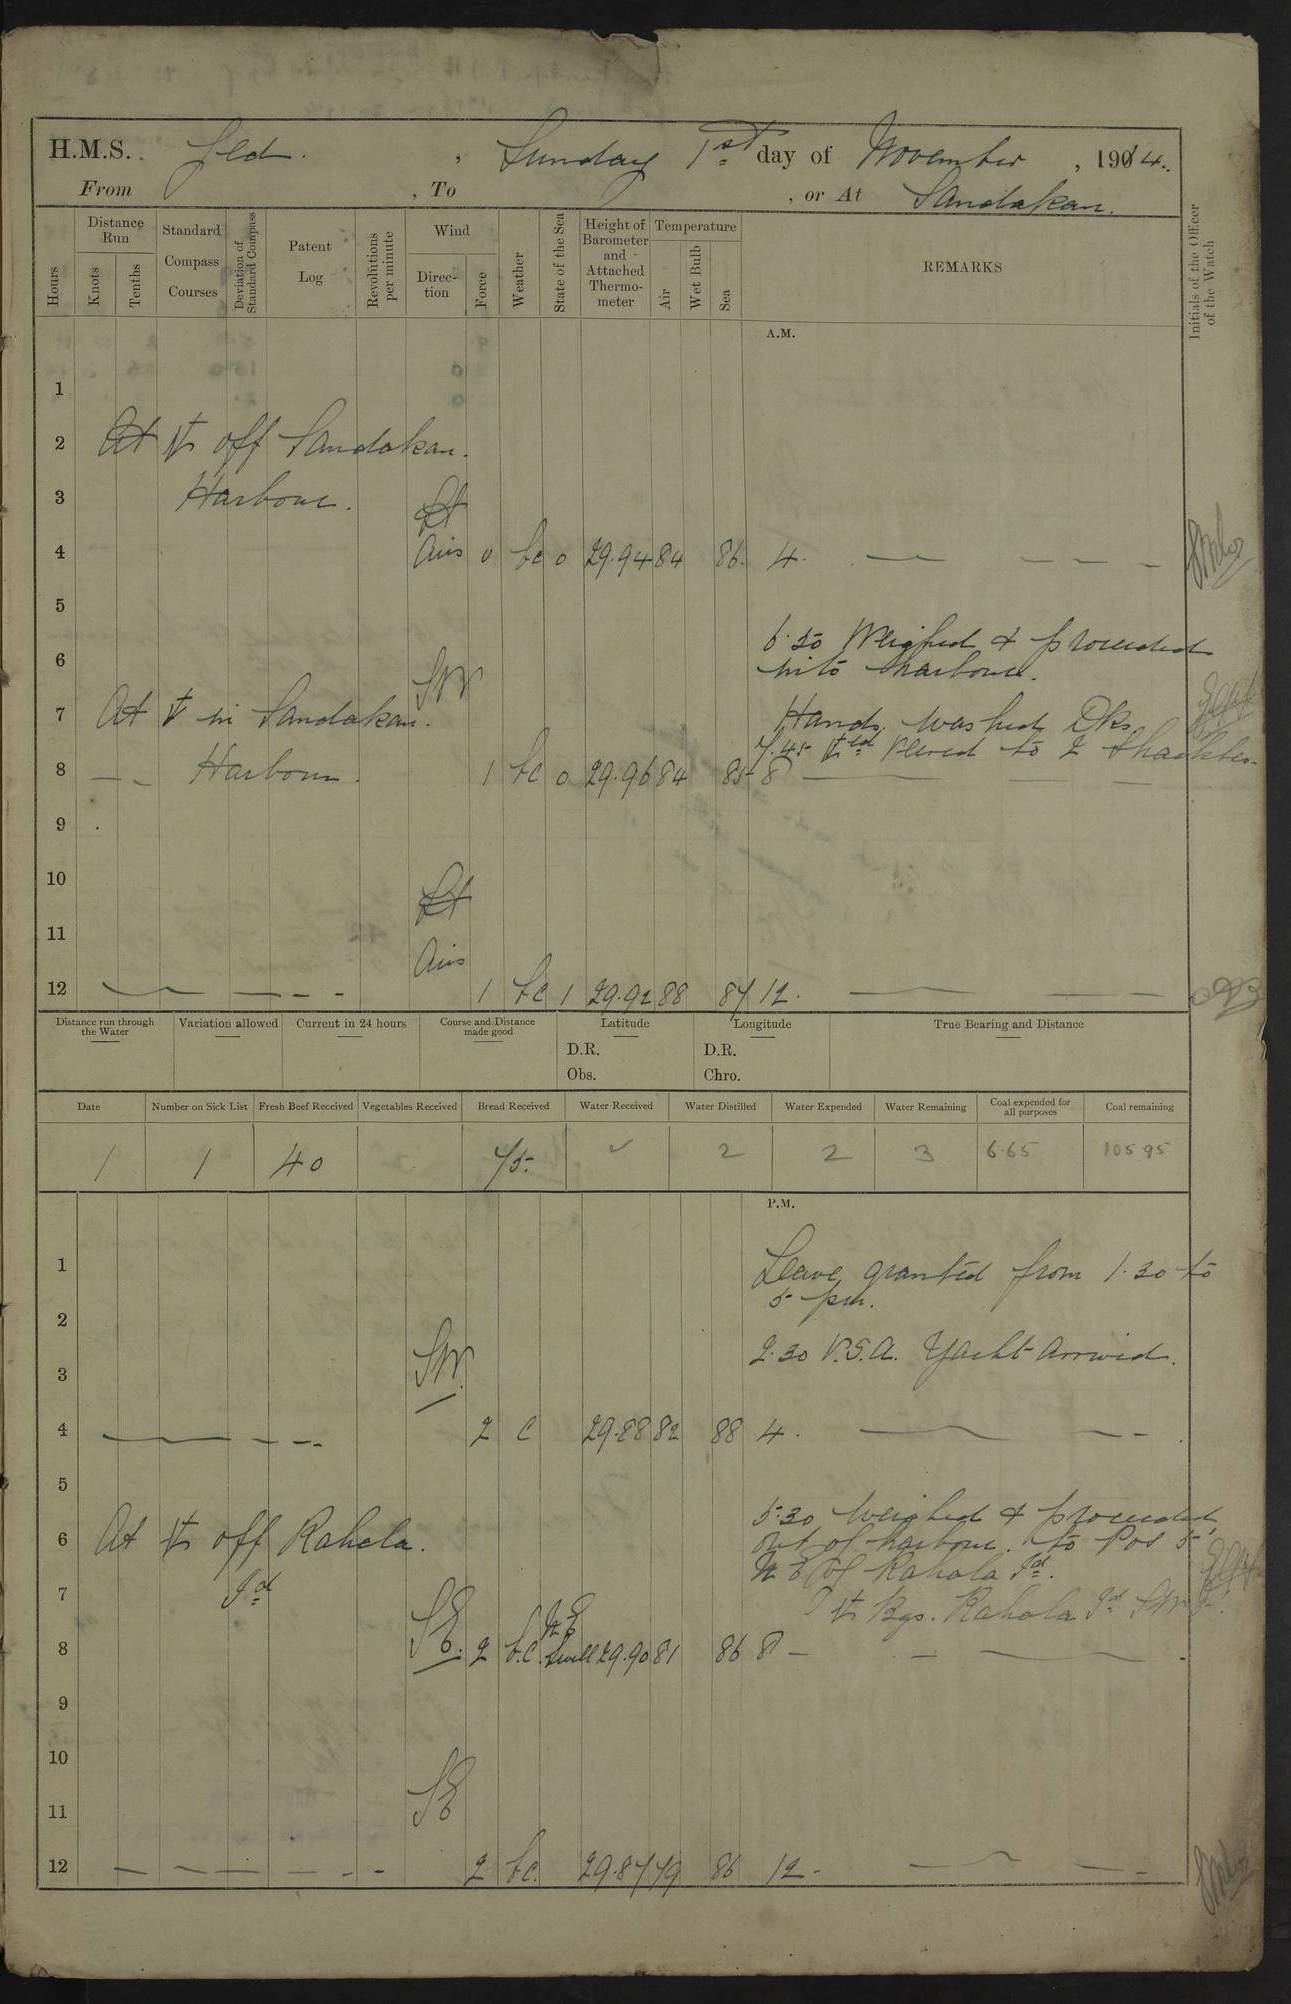 H.M.S. Jed. , Sunday 1st day of November , 1914.
From , To , or At Sandakan.
Hours
Distance Run
Knots
Tenths
Standard Compass Courses
Deviation of Standard Compass
Patent Log
Revolutions per minute
Wind
Direction
Force
Weather
State of the Sea
Height of Barometer and Attached Thermometer
Temperature
Air
Wet Bulb
Sea
REMARKS
Initials of the Officer of the Watch
A.M.
1
2 At off Sandakan.
3 Harbour. Lt
4 Airs 0 bc 0 29.94 84 86. 4.
5
6.50 Weighed & proceeded
6 SW into harbour.
7 At in Sandakan. Hands washed Dks.
7.45 Veered to 2 shackles.
8 Harbour. 1 bc 0 29.96 84 85 8
9
10 Lt
11 Airs
12 1 bc 1 29.92 88 87 12.
Distance run through the Water
Variation allowed
Current in 24 hours
Course and Distance made good
Latitude
D.R.
Obs.
Longitude
D.R.
Chro.
True Bearing and Distance
Date Number on Sick List Fresh Beef Received Vegetables Received Bread Received Water Received Water Distilled Water Expended Water Remaining Coal expended for all purposes Coal remaining
1 1 40 75. 2 2 3 6.65 105 95
P.M.
1 Leave granted from 1.30 to
5 pm.
2
3 SW. 2.30 U.S.A. Yacht arrived.
4 2 c 29.88 82 88 4.
5
5.30 Weighed & proceeded
6 At off Rahola. out of harbour. to Pos 5'
Id N E of Rahola Id.
7 Bgs. Rahola Id SW 5'.
8 SE. 2 b.c. NE Swell 29.90 81 86 8
9
10
11 SE
12 2 bc. 29.87 79 86 12.